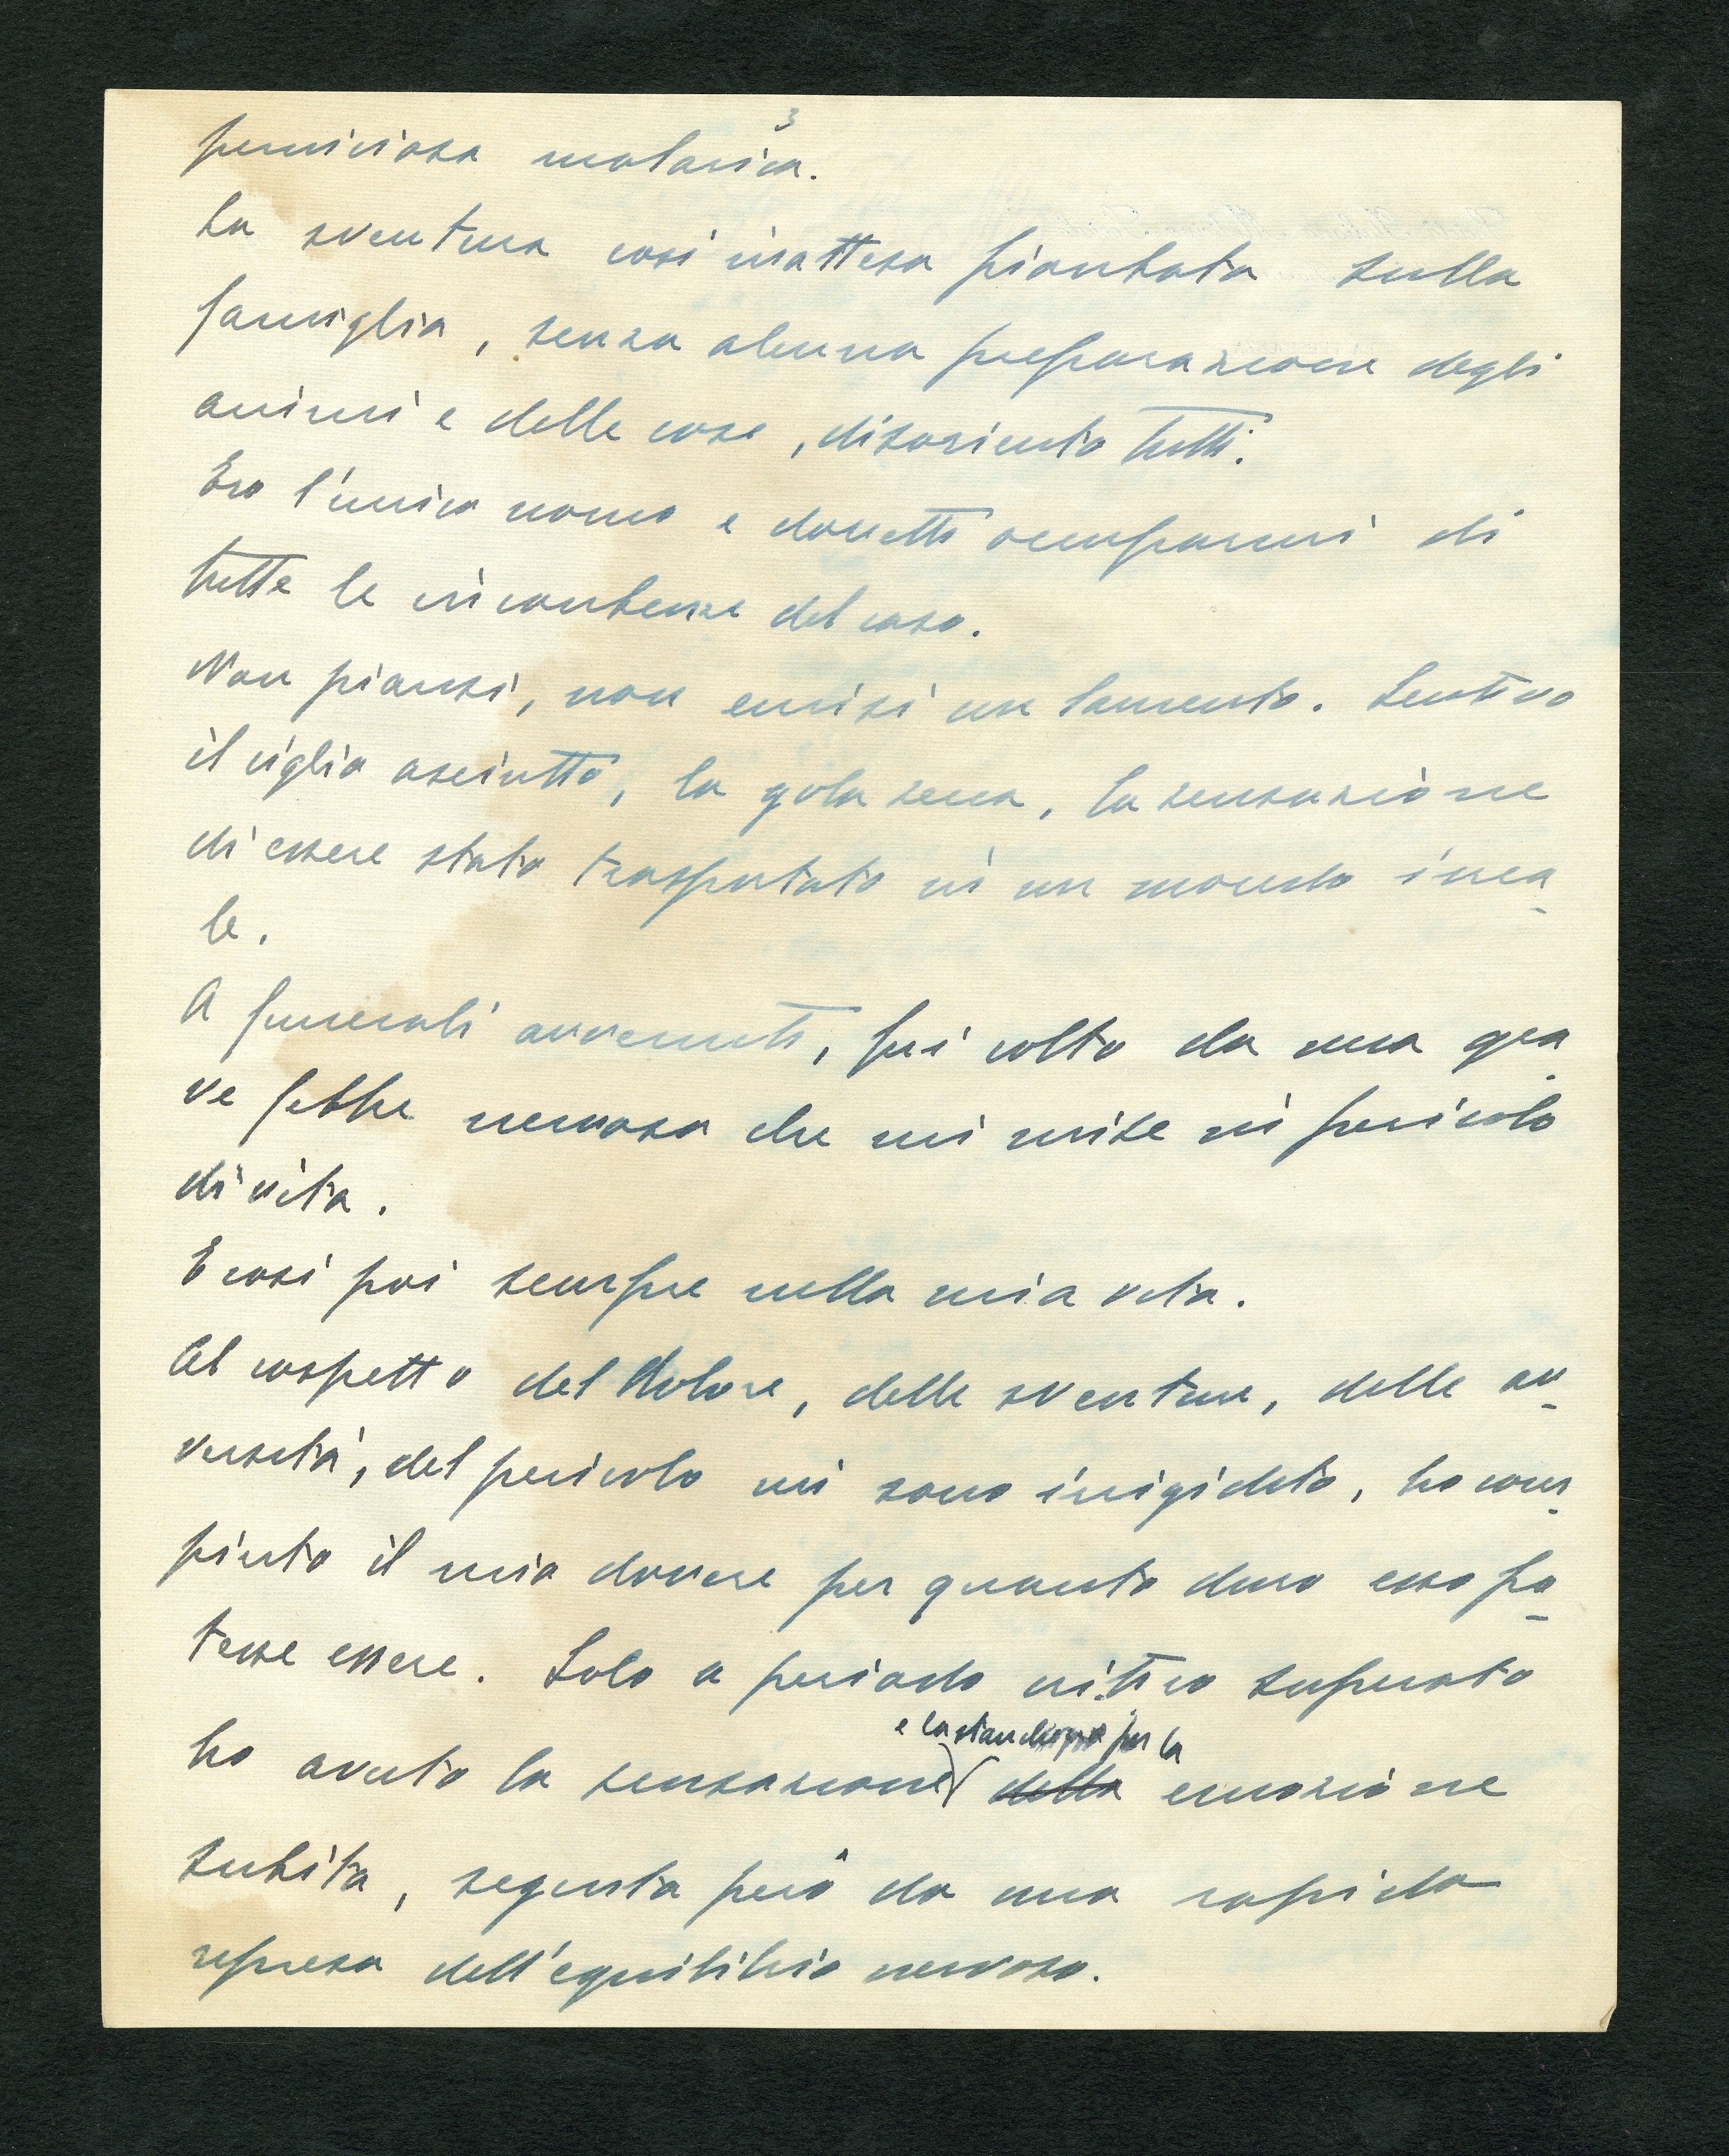 3
perniciosa malarica.
La sventura così inattesa piombata sulla
famiglia, senza alcuna preparazione degli
animi e delle cose, disorientò tutti.
Ero l'unico uomo e dovetti occuparmi di
tutte le incombenze del caso.
Non piansi, non emisi un lamento. Sentivo
il ciglio asciutto, la gola secca, la sensazione
di essere stato trasportato in un mondo irrea-
le.
A funerali avvenuti, fui colto da una gra-
ve febbre nervosa che mi mise in pericolo
di vita.
E così poi sempre nella mia vita.
Al cospetto del dolore, delle sventure, delle av-
versità, del pericolo mi sono irrigidito, ho com-
piuto il mio dovere per quanto duro esso po-
tesse essere. Solo a periodo critico superato
e la stanchezza per la
ho avuto la sensazione della emozione
subita, seguita però da una rapida
ripresa dell'equilibrio nervoso.